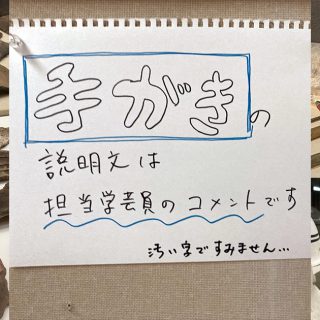 手がきの
説明文は
担当学芸員のコメントです
汚い字ですみません…